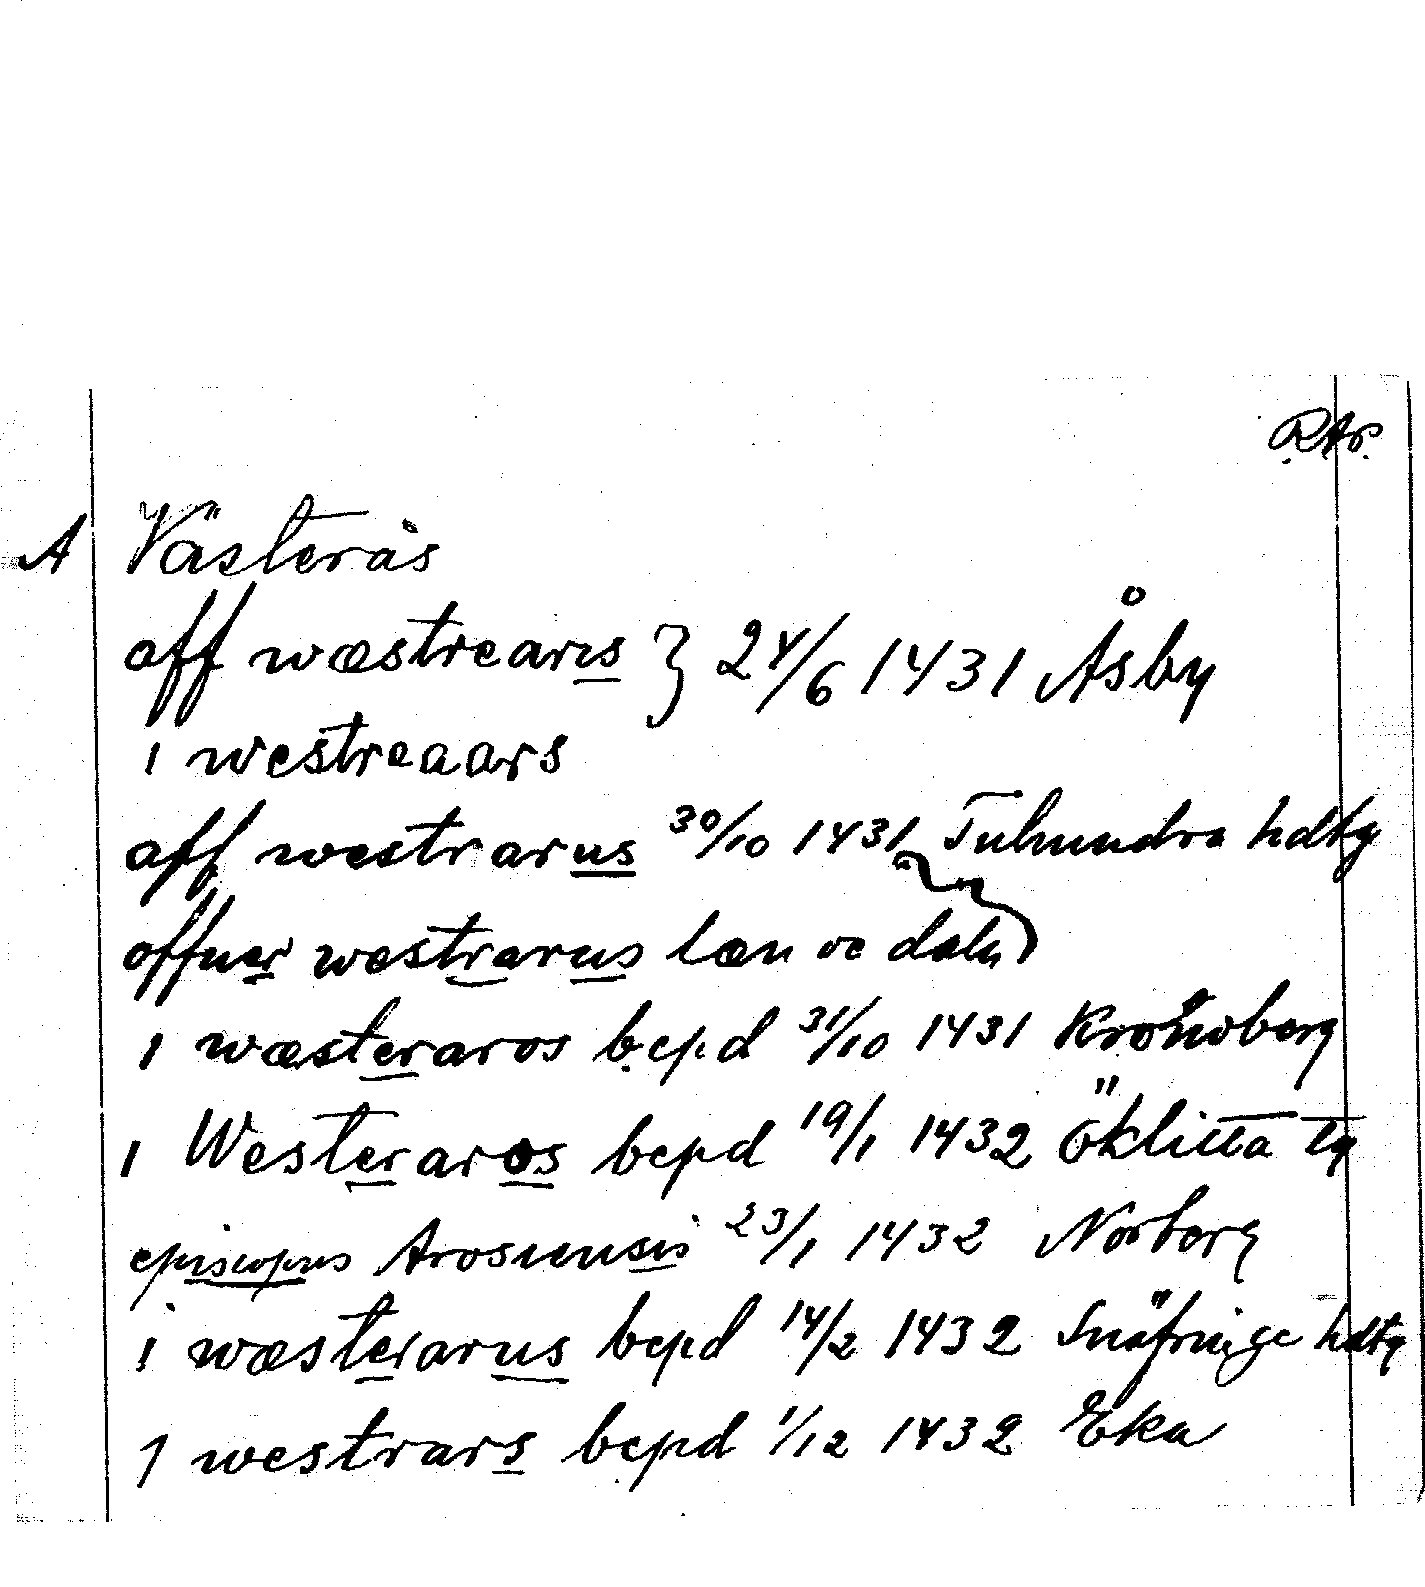 RAp.
A Västerås
aff wæstrearus } 24/6 1431 Åsby
i westreaars
aff westrarus 30/10 1431 Tuhundra hdtg
offuer westrarus læn oc dala
i wæsteraros bepd 31/10 1431 Kronoberg
i Westeraros bepd 19/1 1432 Öklitta tg
episcopus Arosiensis 23/1 1432 Norberg
i wæsterarus bepd 14/2 1432 Snäfringe hdtg
J westrars bepd 1/12 1432 Eka